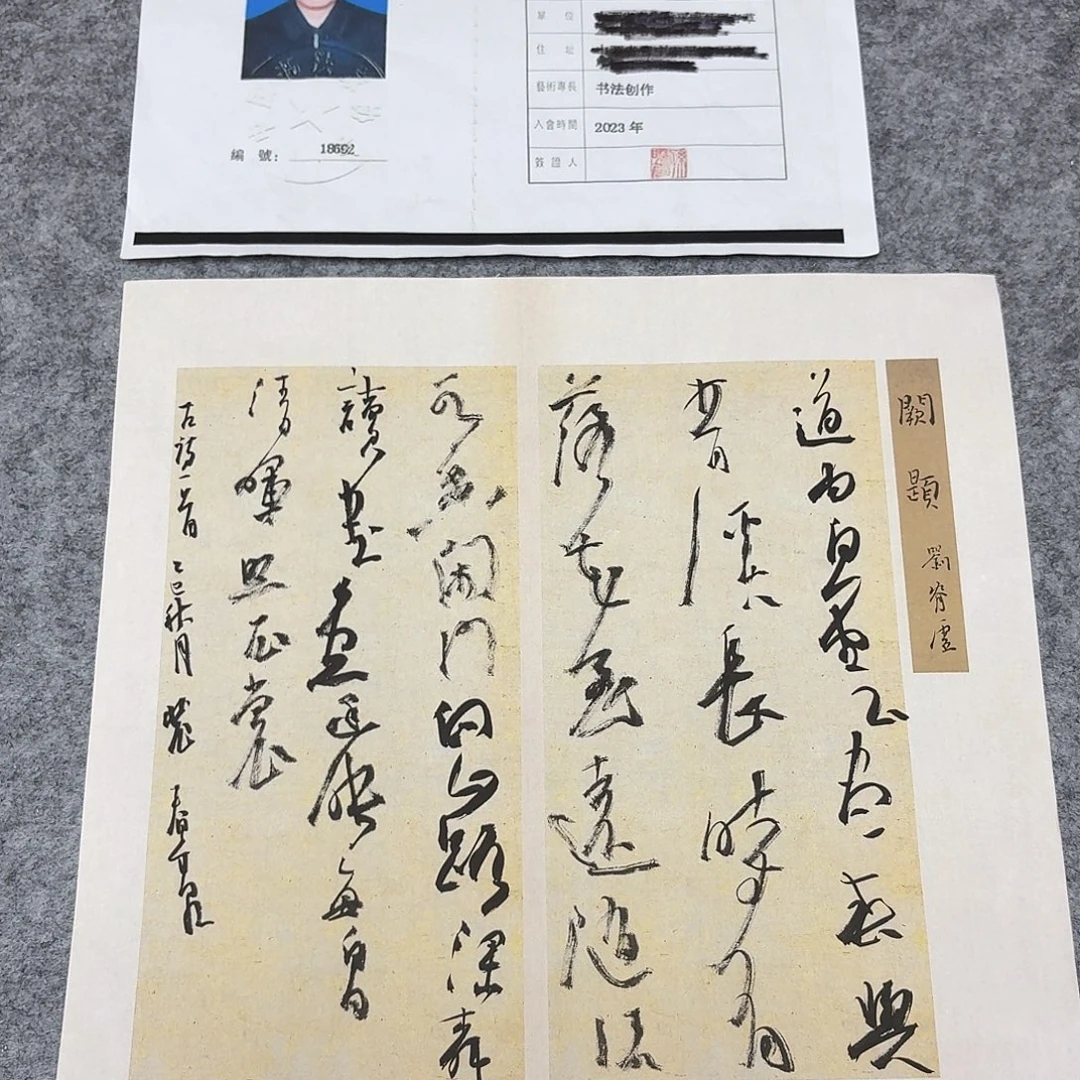 單 位
住 址
藝術專長 书法创作
入會時間 2023 年
簽 證 人
編 號: 18692
闕題 劉昚虛
道由白雲盡春與
青溪長時有
落花至遠隨流
水香閑門向山路深柳
讀書堂幽映每白日
清暉照衣裳
古詩一首 乙巳秋月